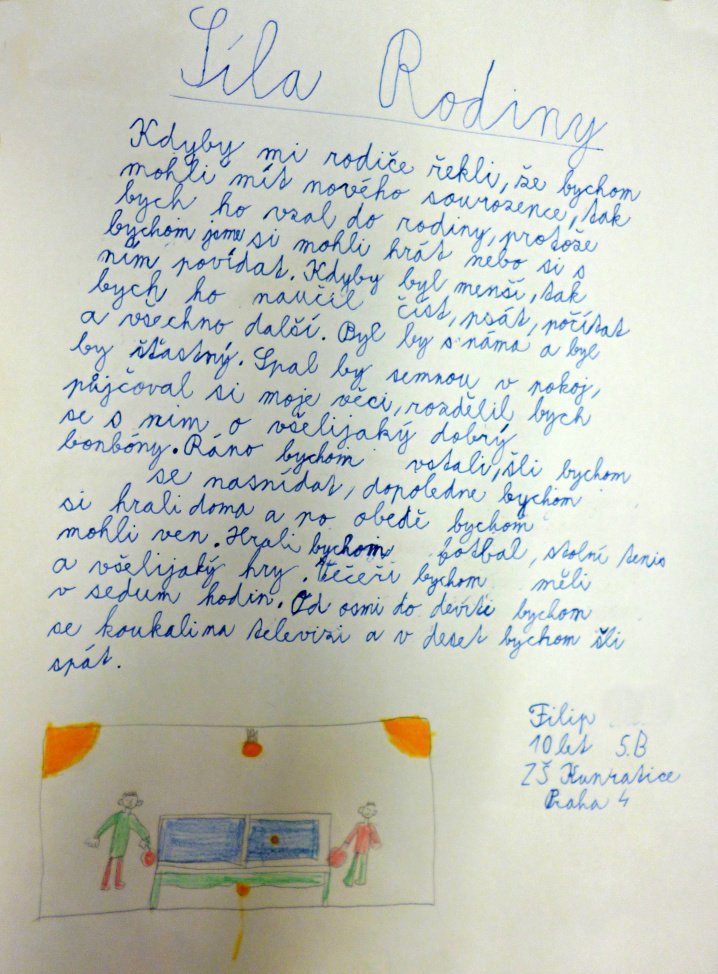 Síla Rodiny
Kdyby mi rodiče řekli, že bychom
mohli mít nového sourozence, tak
bych ho vzal do rodiny, protože
bychom jsme si mohli hrát nebo si s
ním povídat. Kdyby byl menší, tak
bych ho naučil číst, psát, počítat
a všechno další. Byl by s náma a byl
by šťastný. Spal by semnou v pokoj,
půjčoval si moje věci, rozdělil bych
se s nim o všelijaký dobrý
bonbóny. Ráno bychom vstali, šli bychom
se nasnídat, dopoledne bychom
si hrali doma a po obědě bychom
mohli ven. Hrali bychom fotbal, stolní tenis
a všelijaký hry. Večeři bychom měli
v sedum hodin. Od osmi do devíti bychom
se koukali na televizi a v deset bychom šli
spát.
Filip
10 let 5.B
ZŠ Kunratice
Praha 4